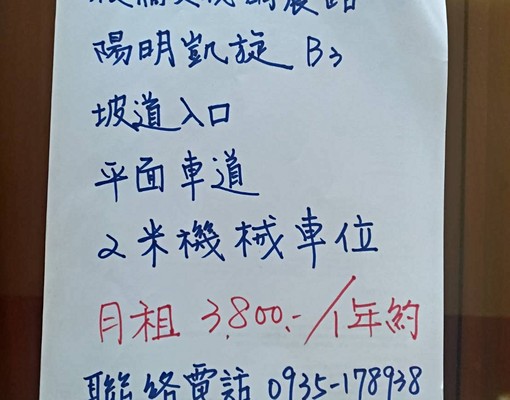 陽明凱旋 B3
坡道入口
平面車道
2米機械車位
月租 3,800.-/1年約
聯絡電話 0935-178938